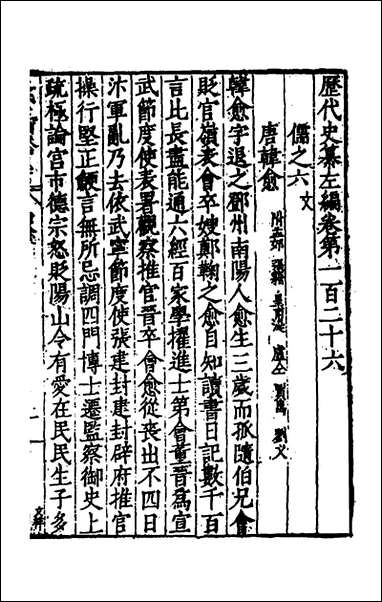 歷代史纂左編卷第一百二十六
儒之六文
唐韓愈 附孟郊 張籍 皇甫湜 盧仝 賈島 劉义
韓愈字退之鄧州南陽人愈生三歲而孤隨伯兄會
貶官嶺表會卒嫂鄭鞠之愈自知讀書日記數千百
言比長盡能通六經百家學擢進士第會董晉爲宣
武節度使表署觀察推官晉卒會愈從喪出不四日
汴軍亂乃去依武寧節度使張建封建封辟府推官
操行堅正鯁言無所忌調四門博士遷監察御史上
疏極論宮市德宗怒貶陽山令有愛在民民生子多